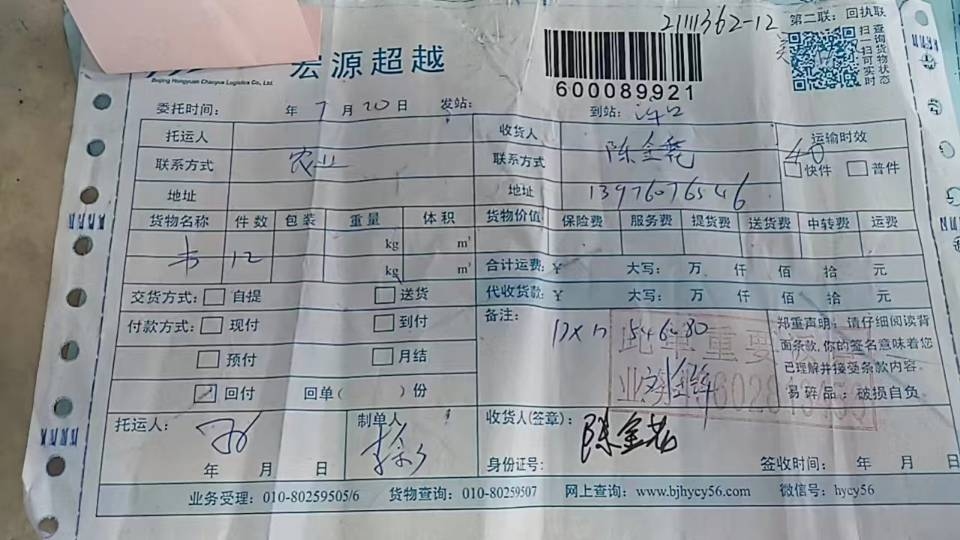 2111362-12 第二联：回执联
扫一扫查询货物可实时状态
宏源超越
Beijing Hongyuan Chaoyue Logistics Co., Ltd.
600089921
委托时间： 年 7 月 20 日 发站： 到站：
托运人 收货人 运输时效
联系方式 农业 联系方式 陈金 快件 普件
地址 地址 13976076546
货物名称 件数 包装 重量 体积 货物价值 保险费 服务费 提货费 送货费 中转费 运费
kg m³
书 12 kg m³ 合计运费：¥ 大写： 万 仟 佰 拾 元
交货方式： 自提 送货 代收货款：¥ 大写： 万 仟 佰 拾 元
付款方式： 现付 到付 备注： 郑重声明：请仔细阅读背
预付 月结 面条款,你的签名意味着您
已理解并接受条款内容。
回付 回单（ ）份 易碎品：破损自负
托运人： 制单人 收货人(签章)： 陈金
年 月 日 身份证号： 签收时间： 年 月 日
业务受理：010-80259505/6 货物查询：010-80259507 网上查询：www.bjhycy56.com 微信号：hycy56